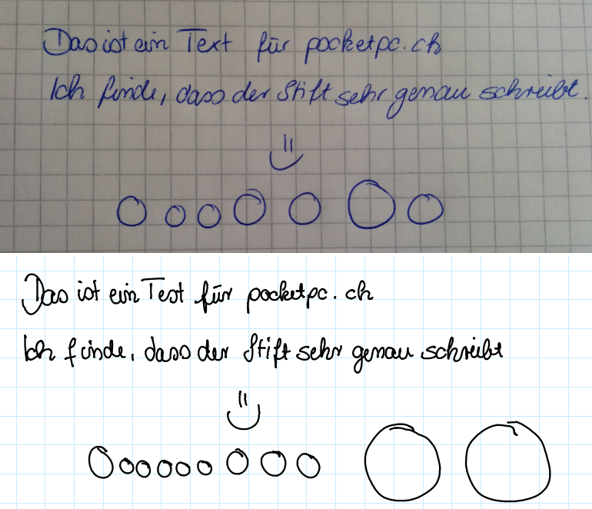 Das ist ein Text für pocketpc.ch
Ich finde, dass der Stift sehr genau schreibt.
Das ist ein Text für pocketpc.ch
Ich finde, dass der Stift sehr genau schreibt